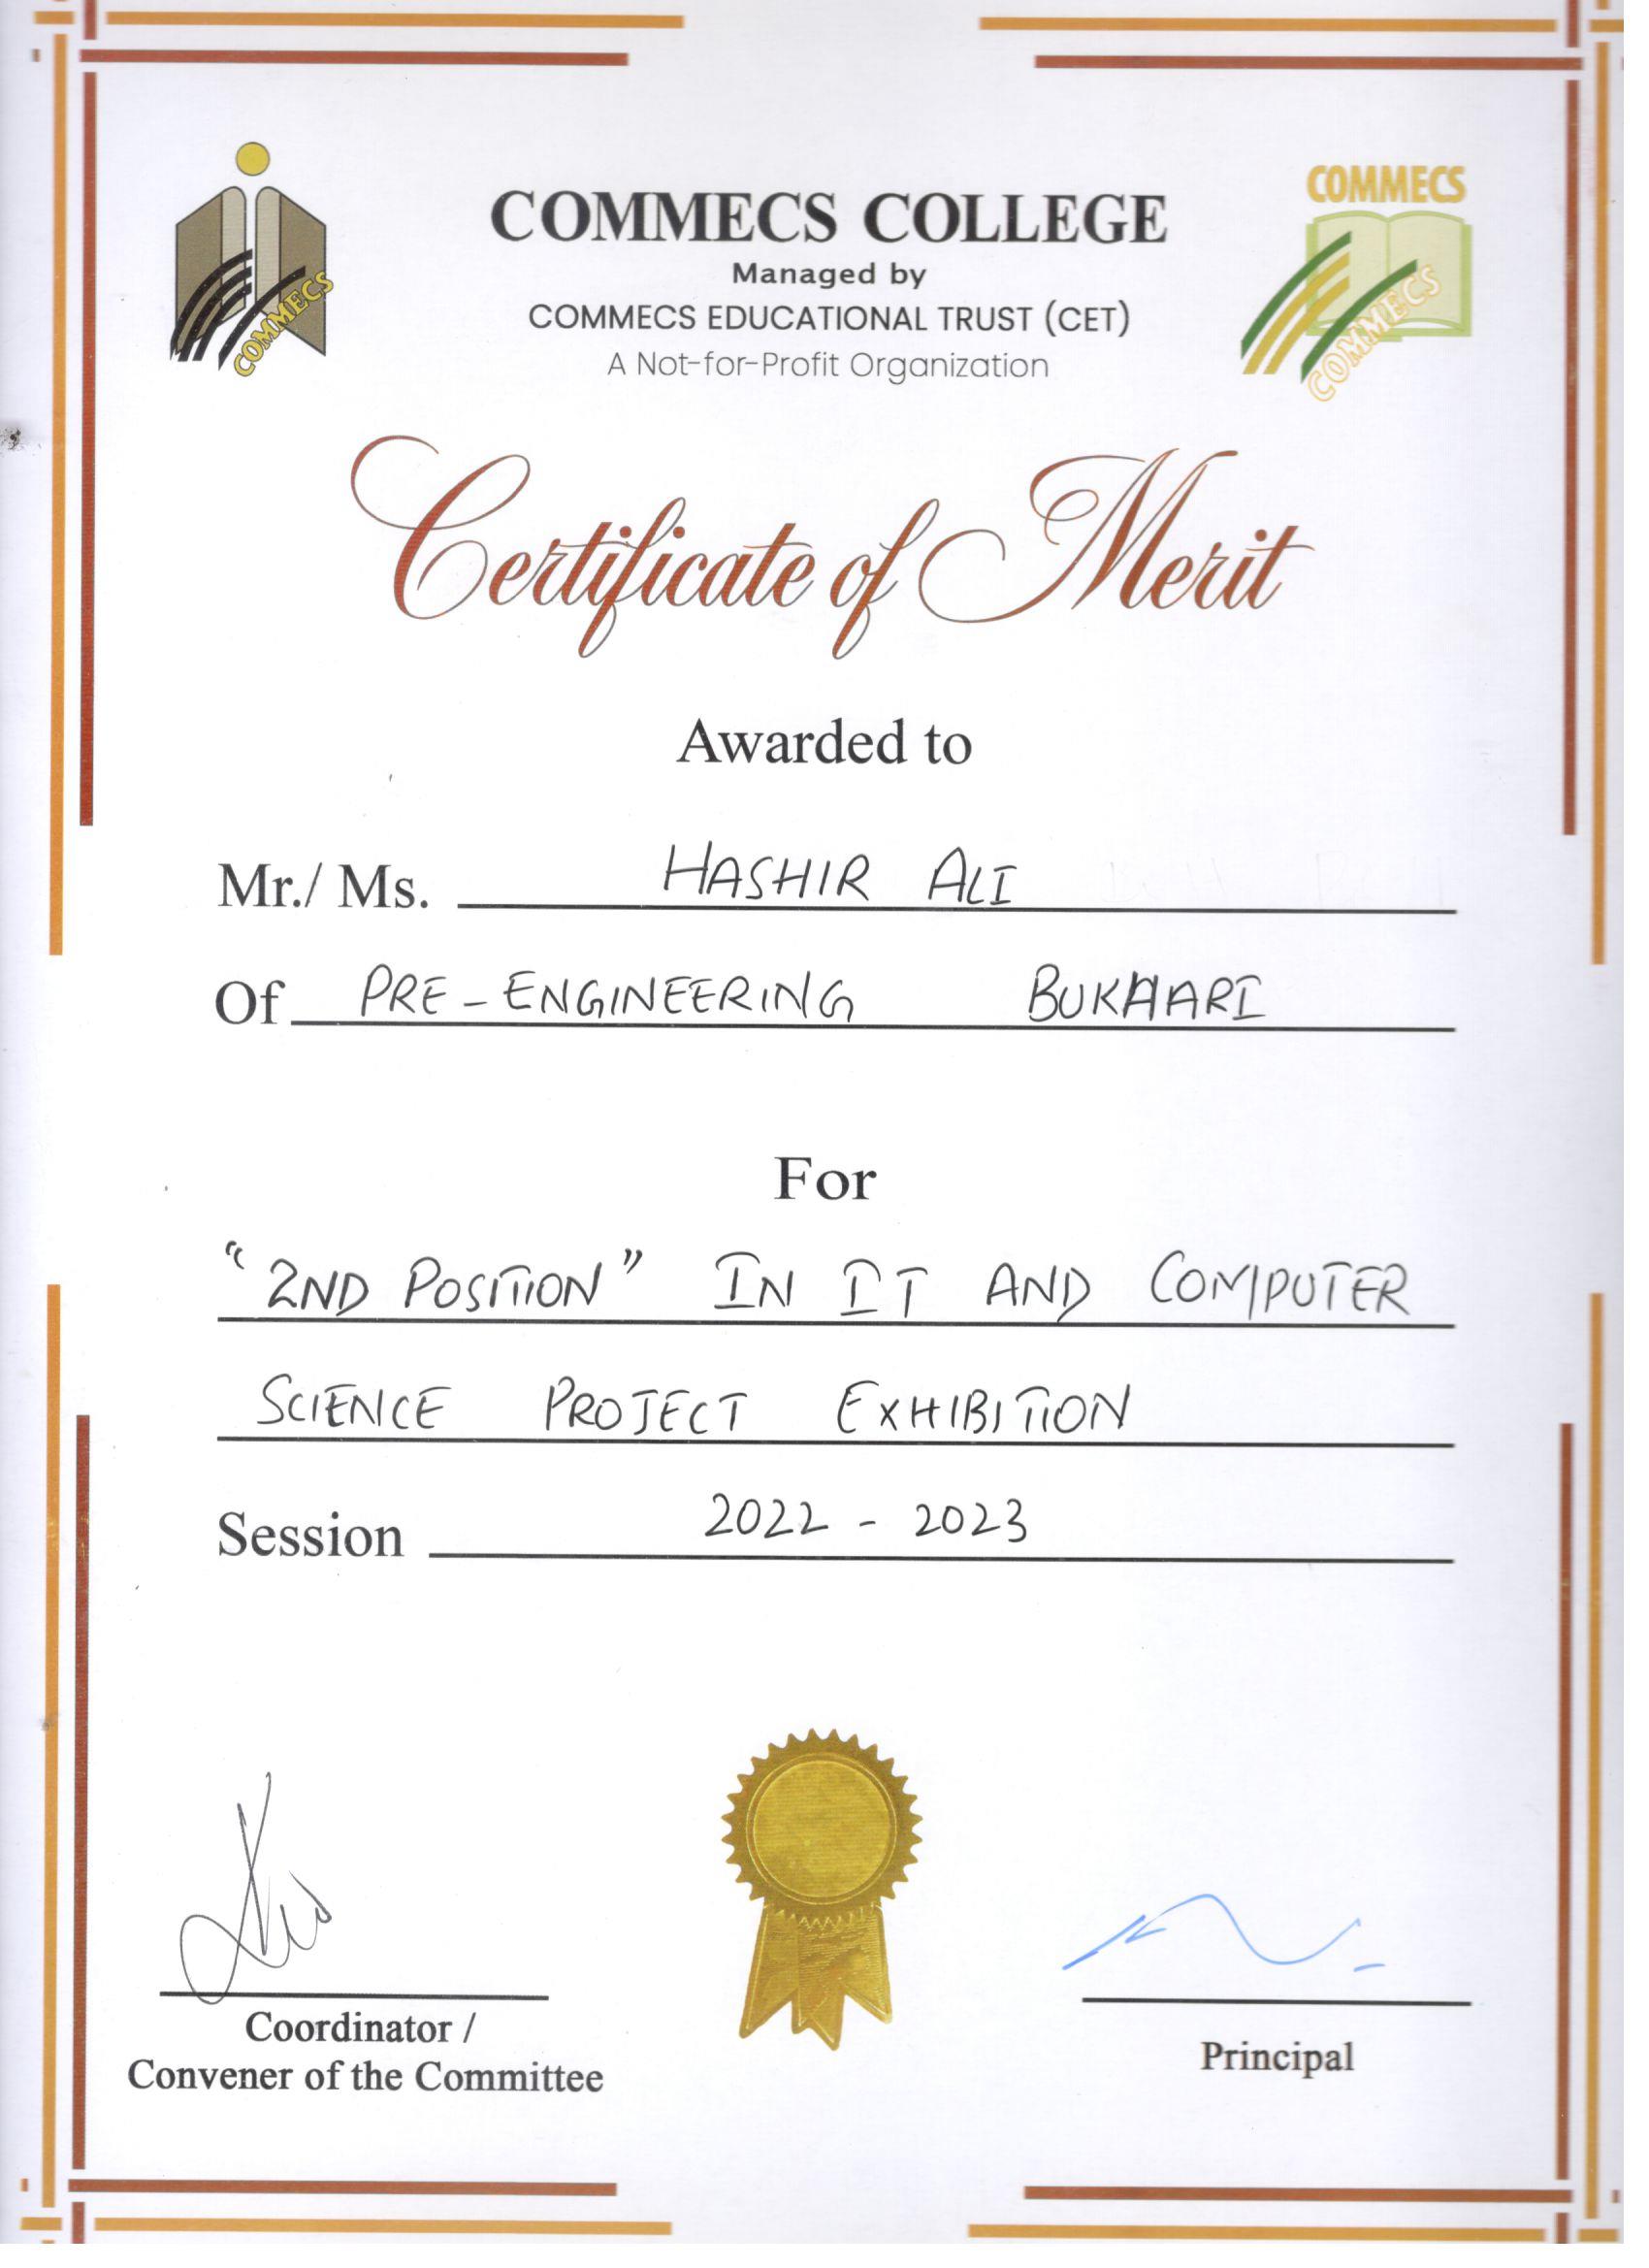 COMMECS
COMMECS COLLEGE
Managed by
COMMECS EDUCATIONAL TRUST (CET)
A Not-for-Profit Organization
COMMECS
COMMECS
Certificate of Merit
Awarded to
Mr./ Ms. HASHIR ALI
Of PRE-ENGINEERING BUKHARI
For
"2ND POSITION" IN IT AND COMPUTER
SCIENCE PROJECT EXHIBITION
Session 2022 - 2023
Coordinator /
Convener of the Committee
Principal